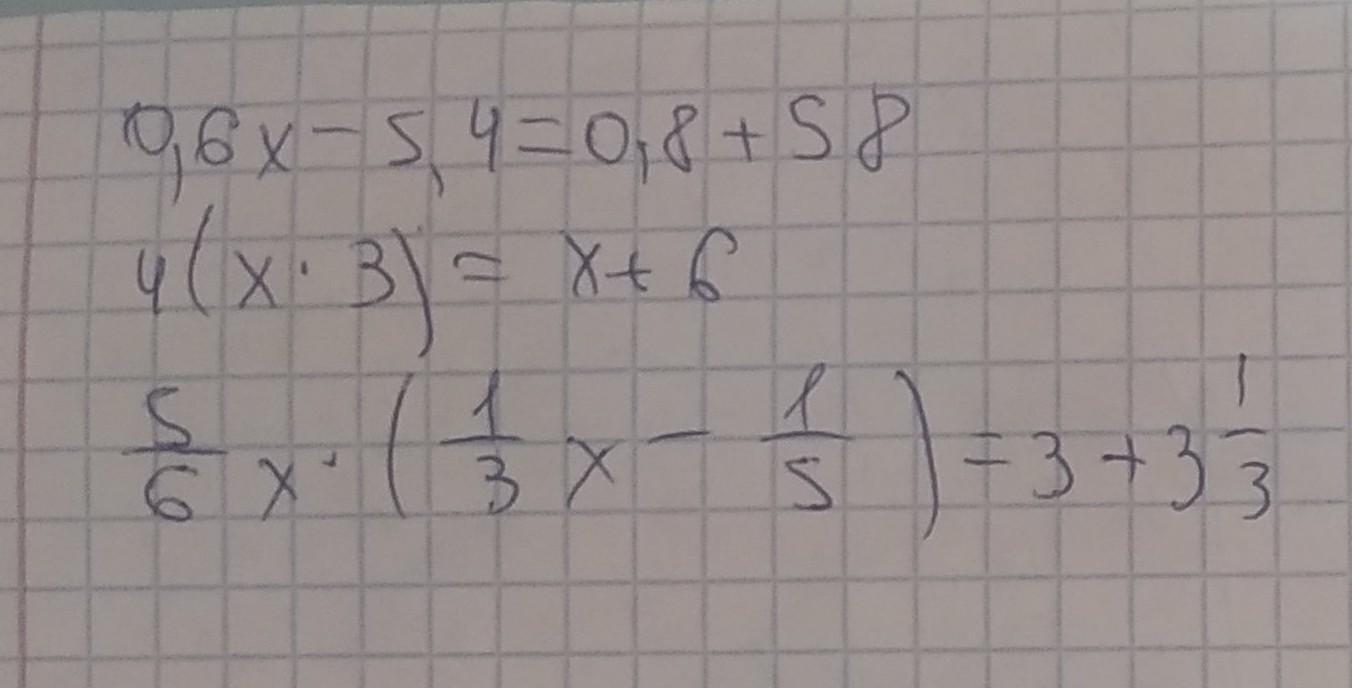 0,6x-5,4=0,8+58
4(x·3)=x+6
5/6 x·(1/3 x-1/5)=3+3 1/3